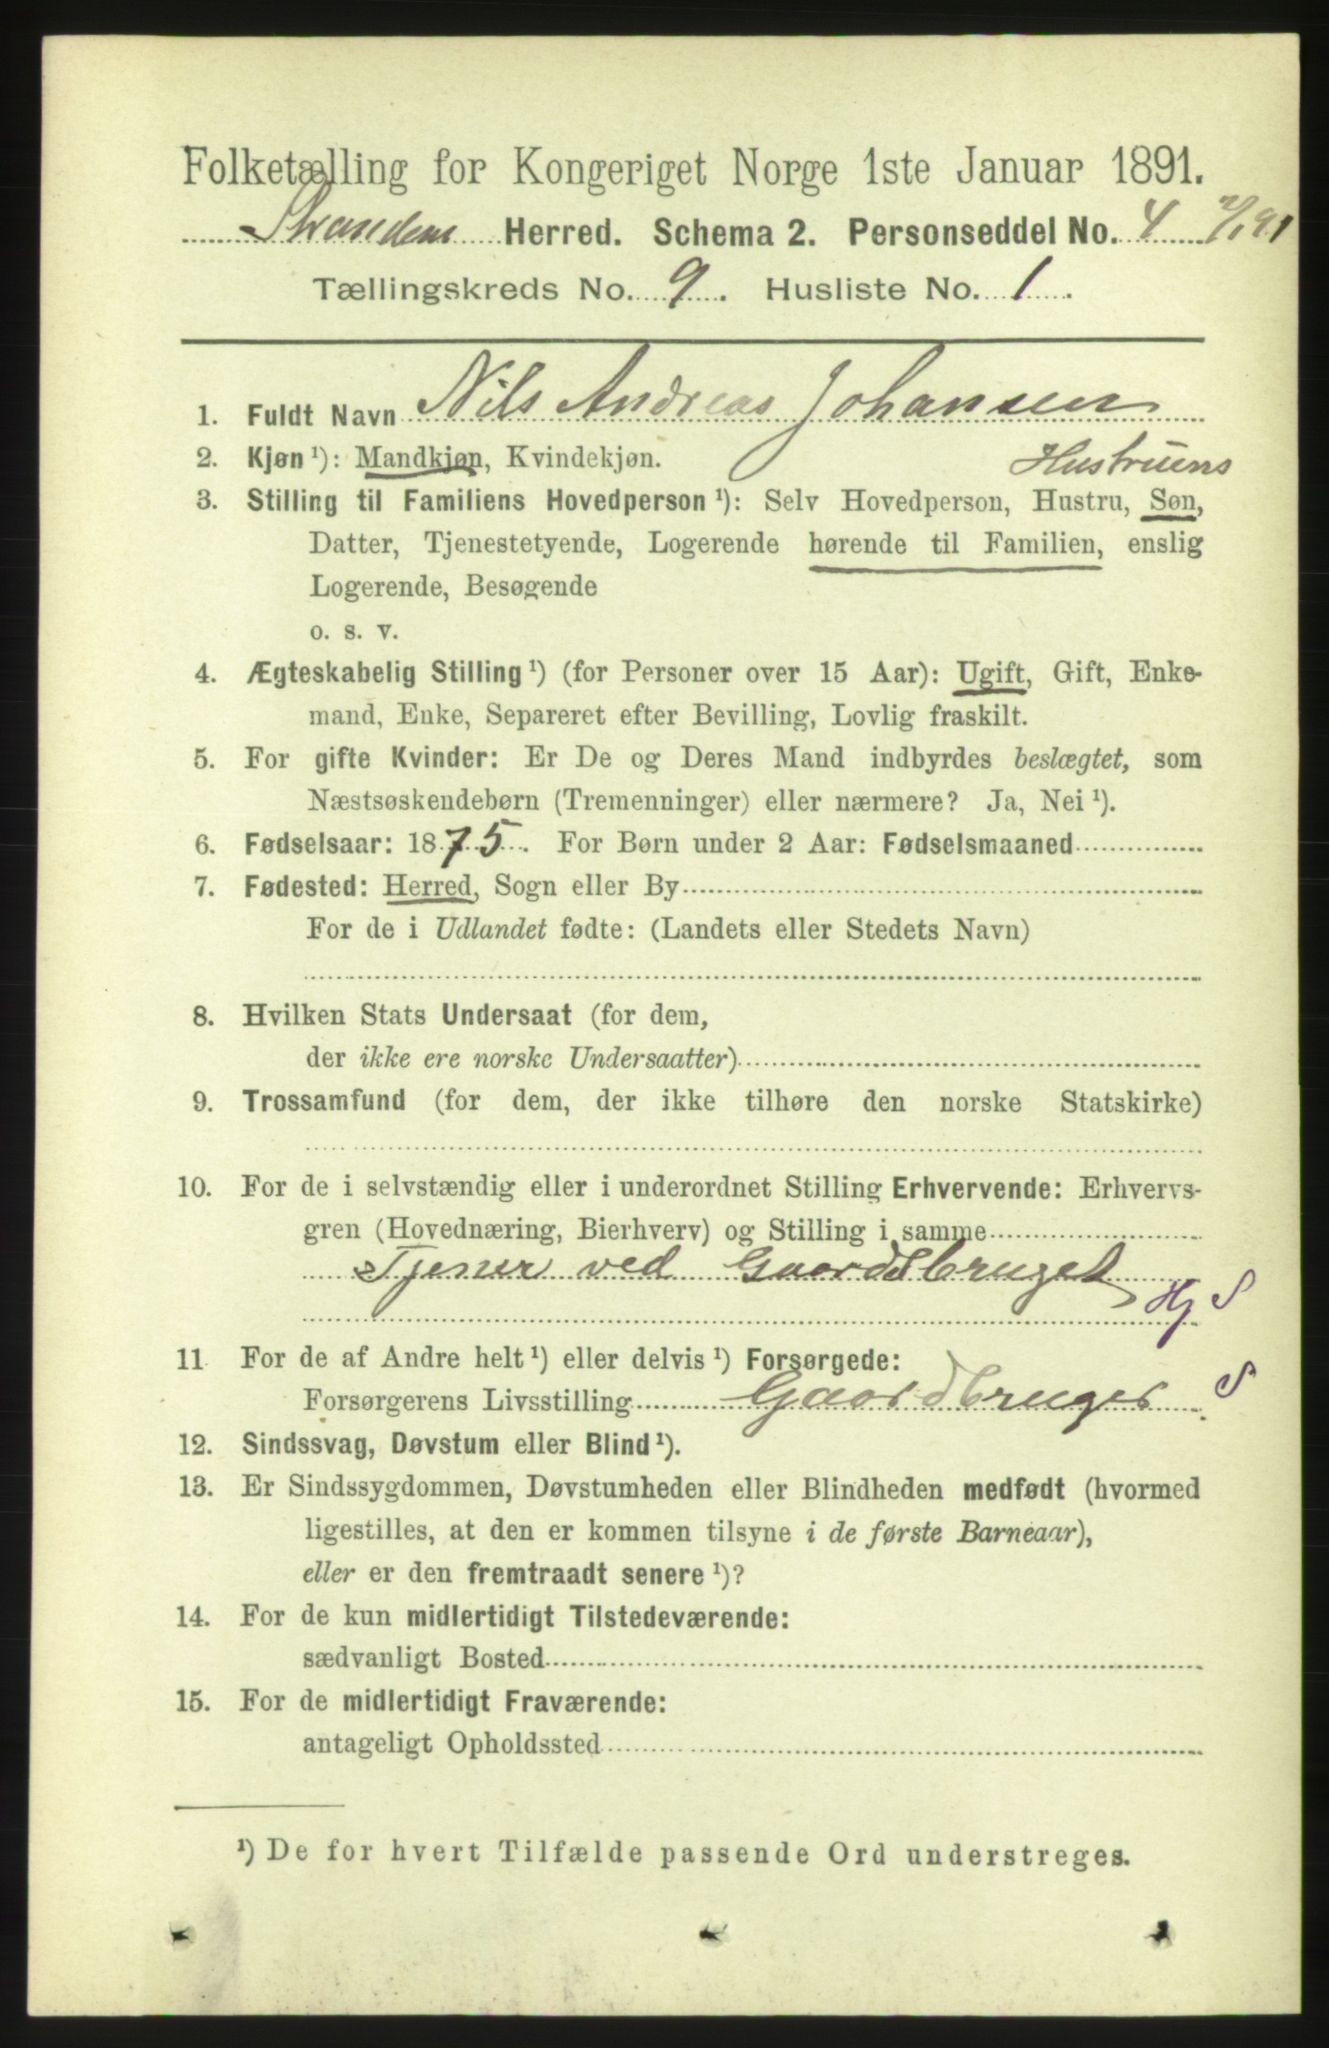 Folketælling for Kongeriget Norge 1ste Januar 1891.
Strandens Herred. Schema 2. Personseddel No. 4
Tællingskreds No. 9. Husliste No. 1.
1. Fuldt Navn Nils Andreas Johansen
2. Kjøn ¹): Mandkjøn, Kvindekjøn.
Hustruens
3. Stilling til Familiens Hovedperson ¹): Selv Hovedperson, Hustru, Søn,
Datter, Tjenestetyende, Logerende hørende til Familien, enslig
Logerende, Besøgende
o. s. v.
4. Ægteskabelig Stilling ¹) (for Personer over 15 Aar): Ugift, Gift, Enke-
mand, Enke, Separeret efter Bevilling, Lovlig fraskilt.
5. For gifte Kvinder: Er De og Deres Mand indbyrdes beslægtet, som
Næstsøskendebørn (Tremenninger) eller nærmere? Ja, Nei ¹).
6. Fødselsaar: 1875. For Børn under 2 Aar: Fødselsmaaned
7. Fødested: Herred, Sogn eller By
For de i Udlandet fødte: (Landets eller Stedets Navn)
8. Hvilken Stats Undersaat (for dem,
der ikke ere norske Undersaatter)
9. Trossamfund (for dem, der ikke tilhøre den norske Statskirke)
10. For de i selvstændig eller i underordnet Stilling Erhvervende: Erhvervs-
gren (Hovednæring, Bierhverv) og Stilling i samme
Tjener ved Gaardsbruget
Hj S
11 For de af Andre helt ¹) eller delvis ¹) Forsørgede:
Forsørgerens Livsstilling Gaardbruger S
12. Sindssvag, Døvstum eller Blind ¹).
13. Er Sindssygdommen, Døvstumheden eller Blindheden medfødt (hvormed
ligestilles, at den er kommen tilsyne i de første Barneaar),
eller er den fremtraadt senere ¹)?
14. For de kun midlertidigt Tilstedeværende:
sædvanligt Bosted
15. For de midlertidigt Fraværende:
antageligt Opholdssted
¹) De for hvert Tilfælde passende Ord understreges.